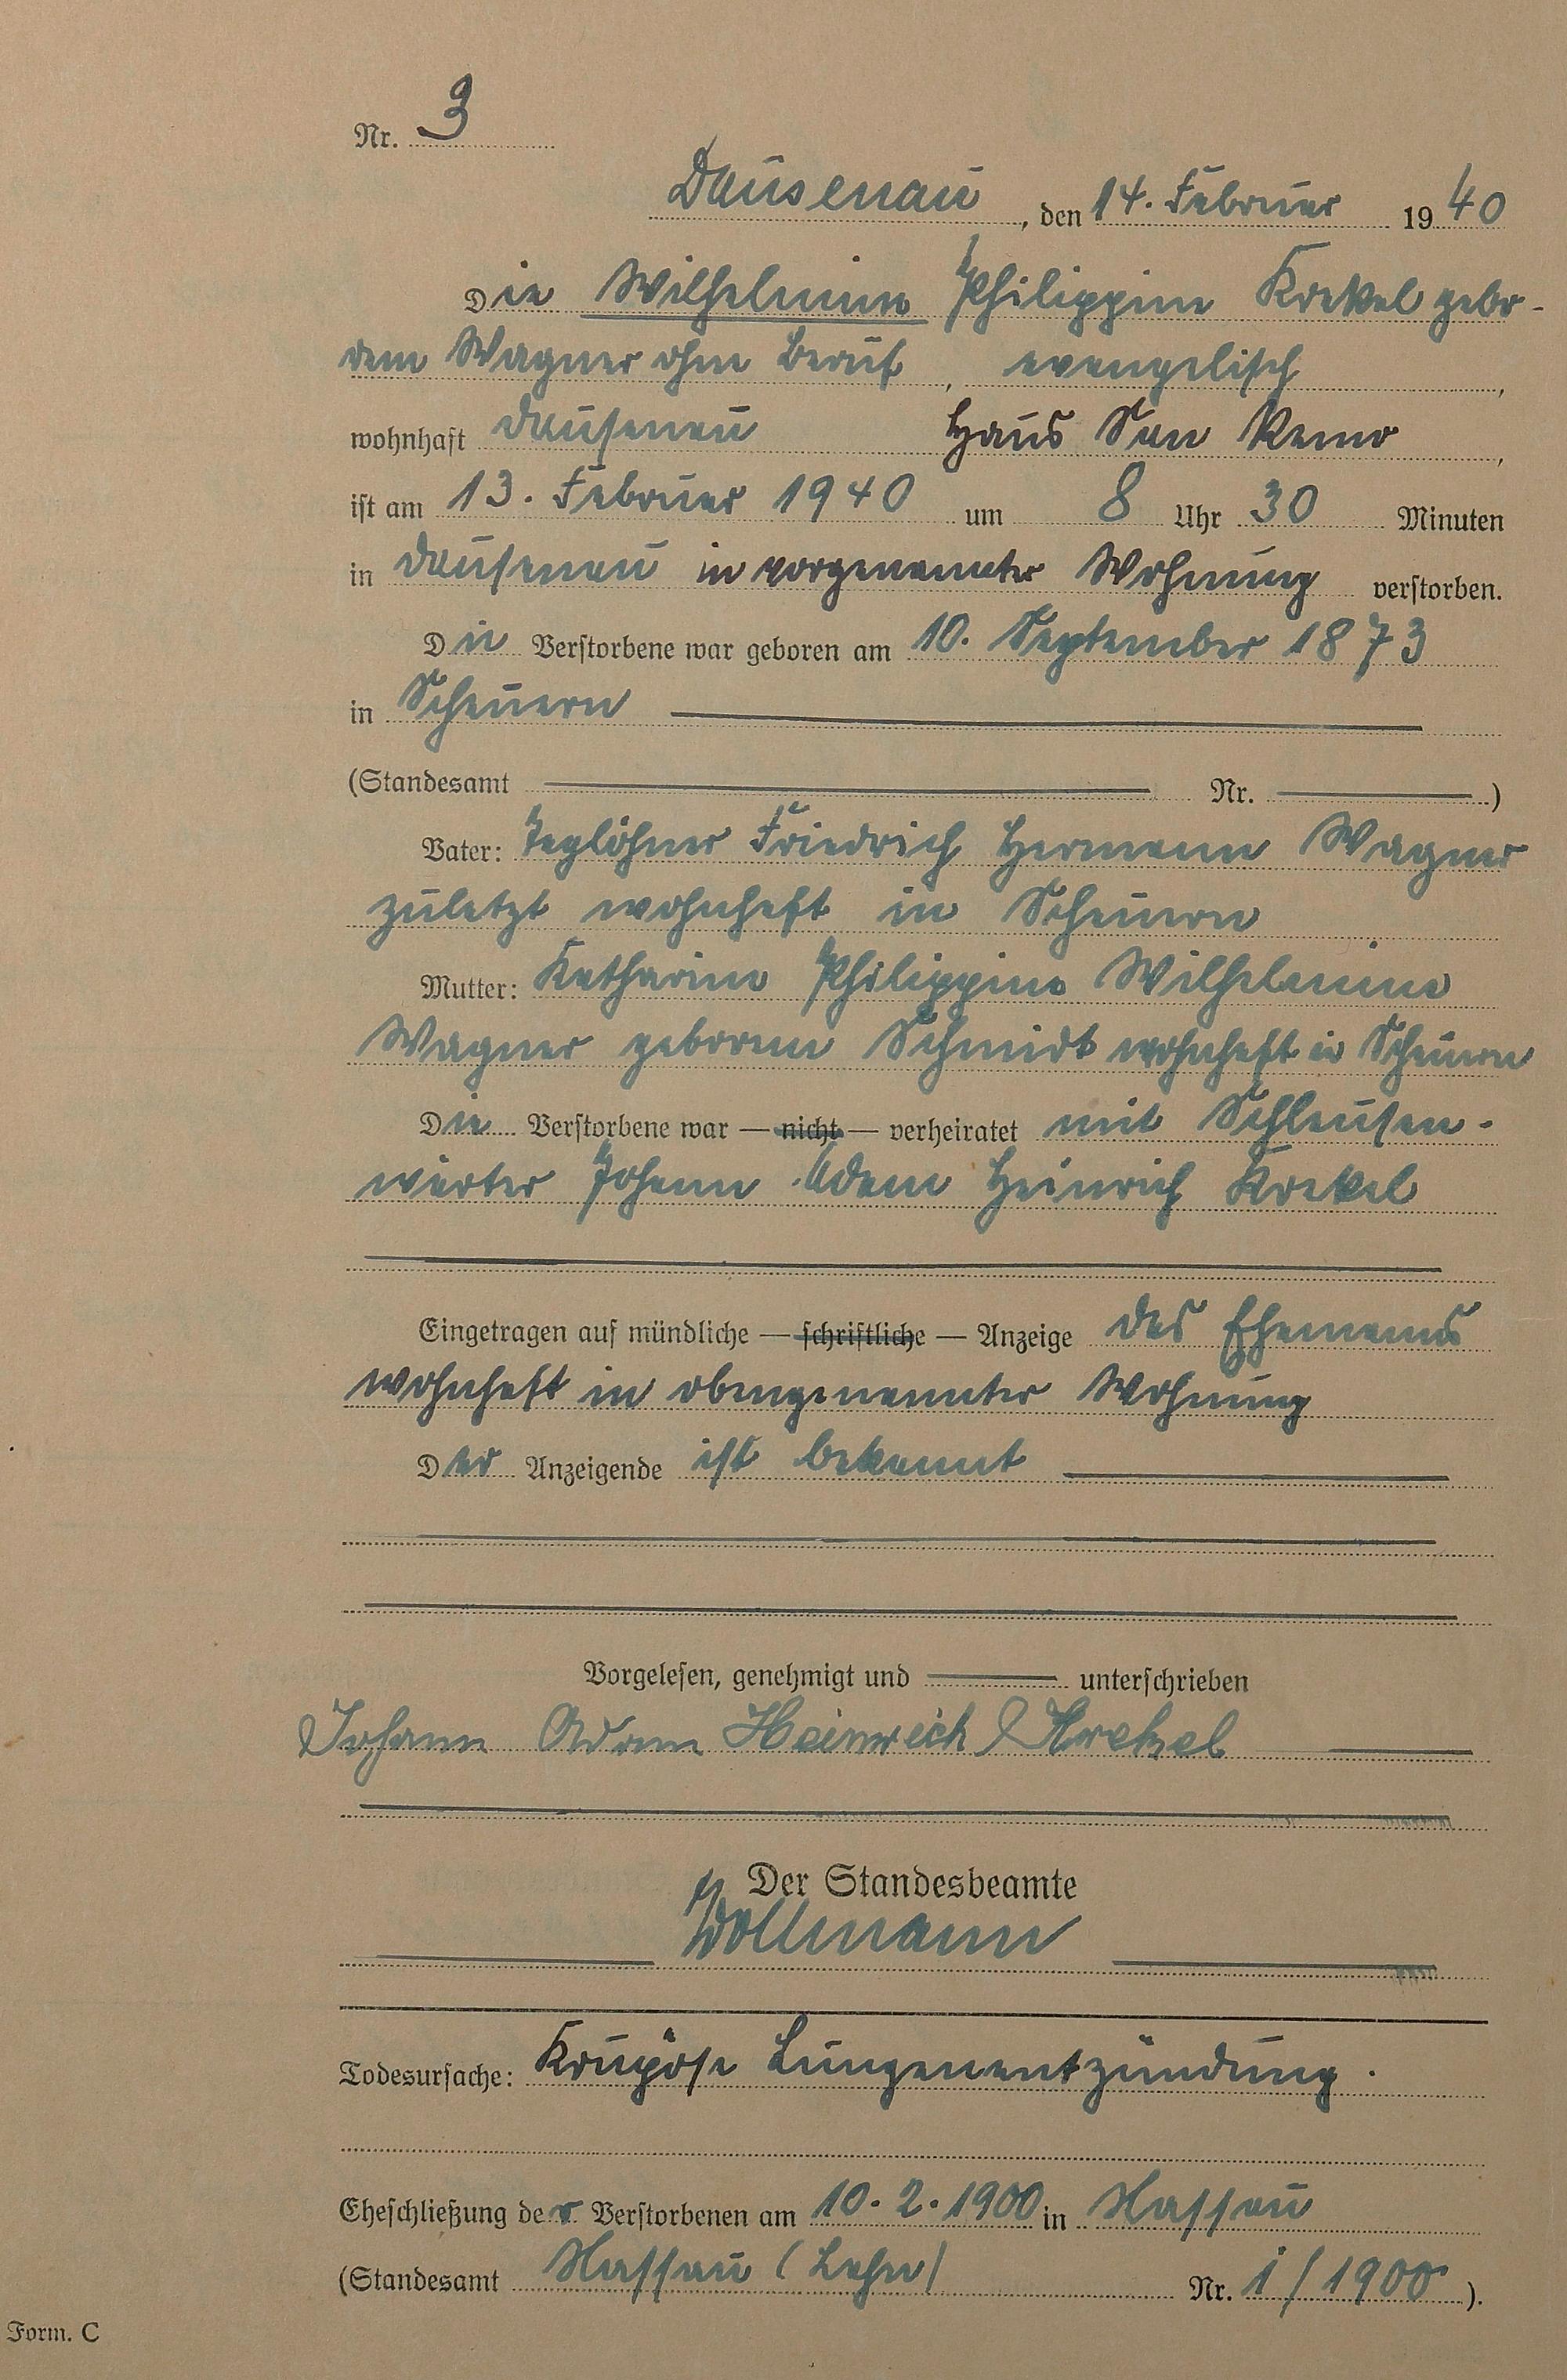 Nr. 3
Dausenau, den 14. Februar 1940
Die Wilhelmine Philippine Krekel gebo-
rene Wagner ohne Beruf, evangelisch,
wohnhaft Dausenau Haus San Remo,
ist am 13. Februar 1940 um 8 Uhr 30 Minuten
in Dausenau in vorgenannter Wohnung verstorben.
Die Verstorbene war geboren am 10. September 1873
in Scheuern
(Standesamt Nr. )
Vater: Taglöhner Friedrich Hermann Wagner
zuletzt wohnhaft in Scheuern
Mutter: Katharine Philippine Wilhelmine
Wagner geborene Schmidt wohnhaft in Scheuern
Die Verstorbene war — nicht — verheiratet mit Schleusen-
wärter Johann Adam Heinrich Krekel
Eingetragen auf mündliche — schriftliche — Anzeige des Ehemanns
wohnhaft in obengenannter Wohnung
Der Anzeigende ist bekannt
Vorgelesen, genehmigt und unterschrieben
Johann Adam Heinrich Krekel
Der Standesbeamte
Wollmann
Todesursache: Krupöse Lungenentzündung.
Eheschließung der Verstorbenen am 10.2.1900 in Nassau
(Standesamt Nassau (Lahn) Nr. 1/1900).
Form. C